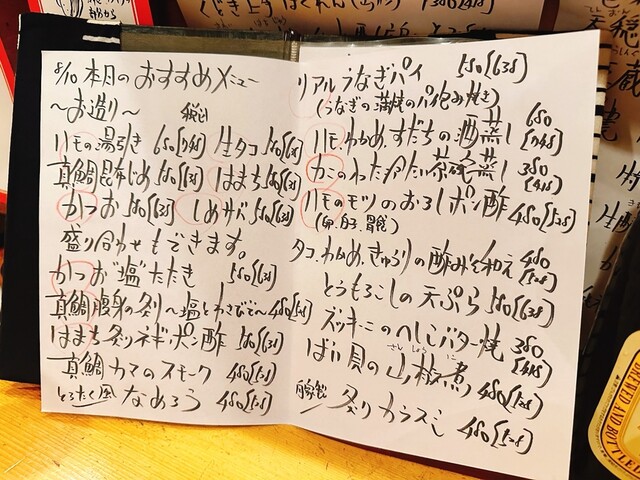 8/10 本日のおすすめメニュー
〜お造り〜 税込
ハモの湯引き 680[748] 生タコ 580[638]
真鯛昆布じめ 580[638] はまち 580[638]
かつお 580[638] しめサバ 580[638]
盛り合わせもできます。
かつお"塩"たたき 580[638]
真鯛腹身の炙り〜塩とわさびで〜 480[528]
はまち炙りネギポン酢 480[528]
真鯛カマのスモーク 480[528]
とろたく風なめろう 480[528]
リアルうなぎパイ 580[638]
(うなぎの蒲焼のパイ包み焼き)
ハモ、わかめ、すだちの酒蒸し 680[748]
このわた冷たい茶碗蒸し 380[418]
ハモのモツのおろしポン酢 480[528]
(卵、白子、胃袋)
タコ、わかめ、きゅうりの酢みそ和え 480[528]
とうもろこしの天ぷら 580[638]
ズッキーニのへしこバター焼 380[418]
ばい貝の山椒煮 480[528]
自家製 炙りカラスミ 480[528]
BREWED AND BOTTLED